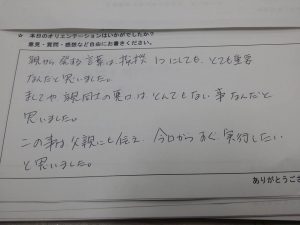 ☆ 本日のオリエンテーションはいかがでしたか?
意見・質問・感想など自由にお書きください。
親から発する言葉は、挨拶 1つにしても、とても重要
なんだと思いました。
ましてや、親同士の悪口は、とんでもない事なんだと
思いました。
この事は父親にも伝え、今日から すぐ、実行したい
と思いました。
ありがとうござ